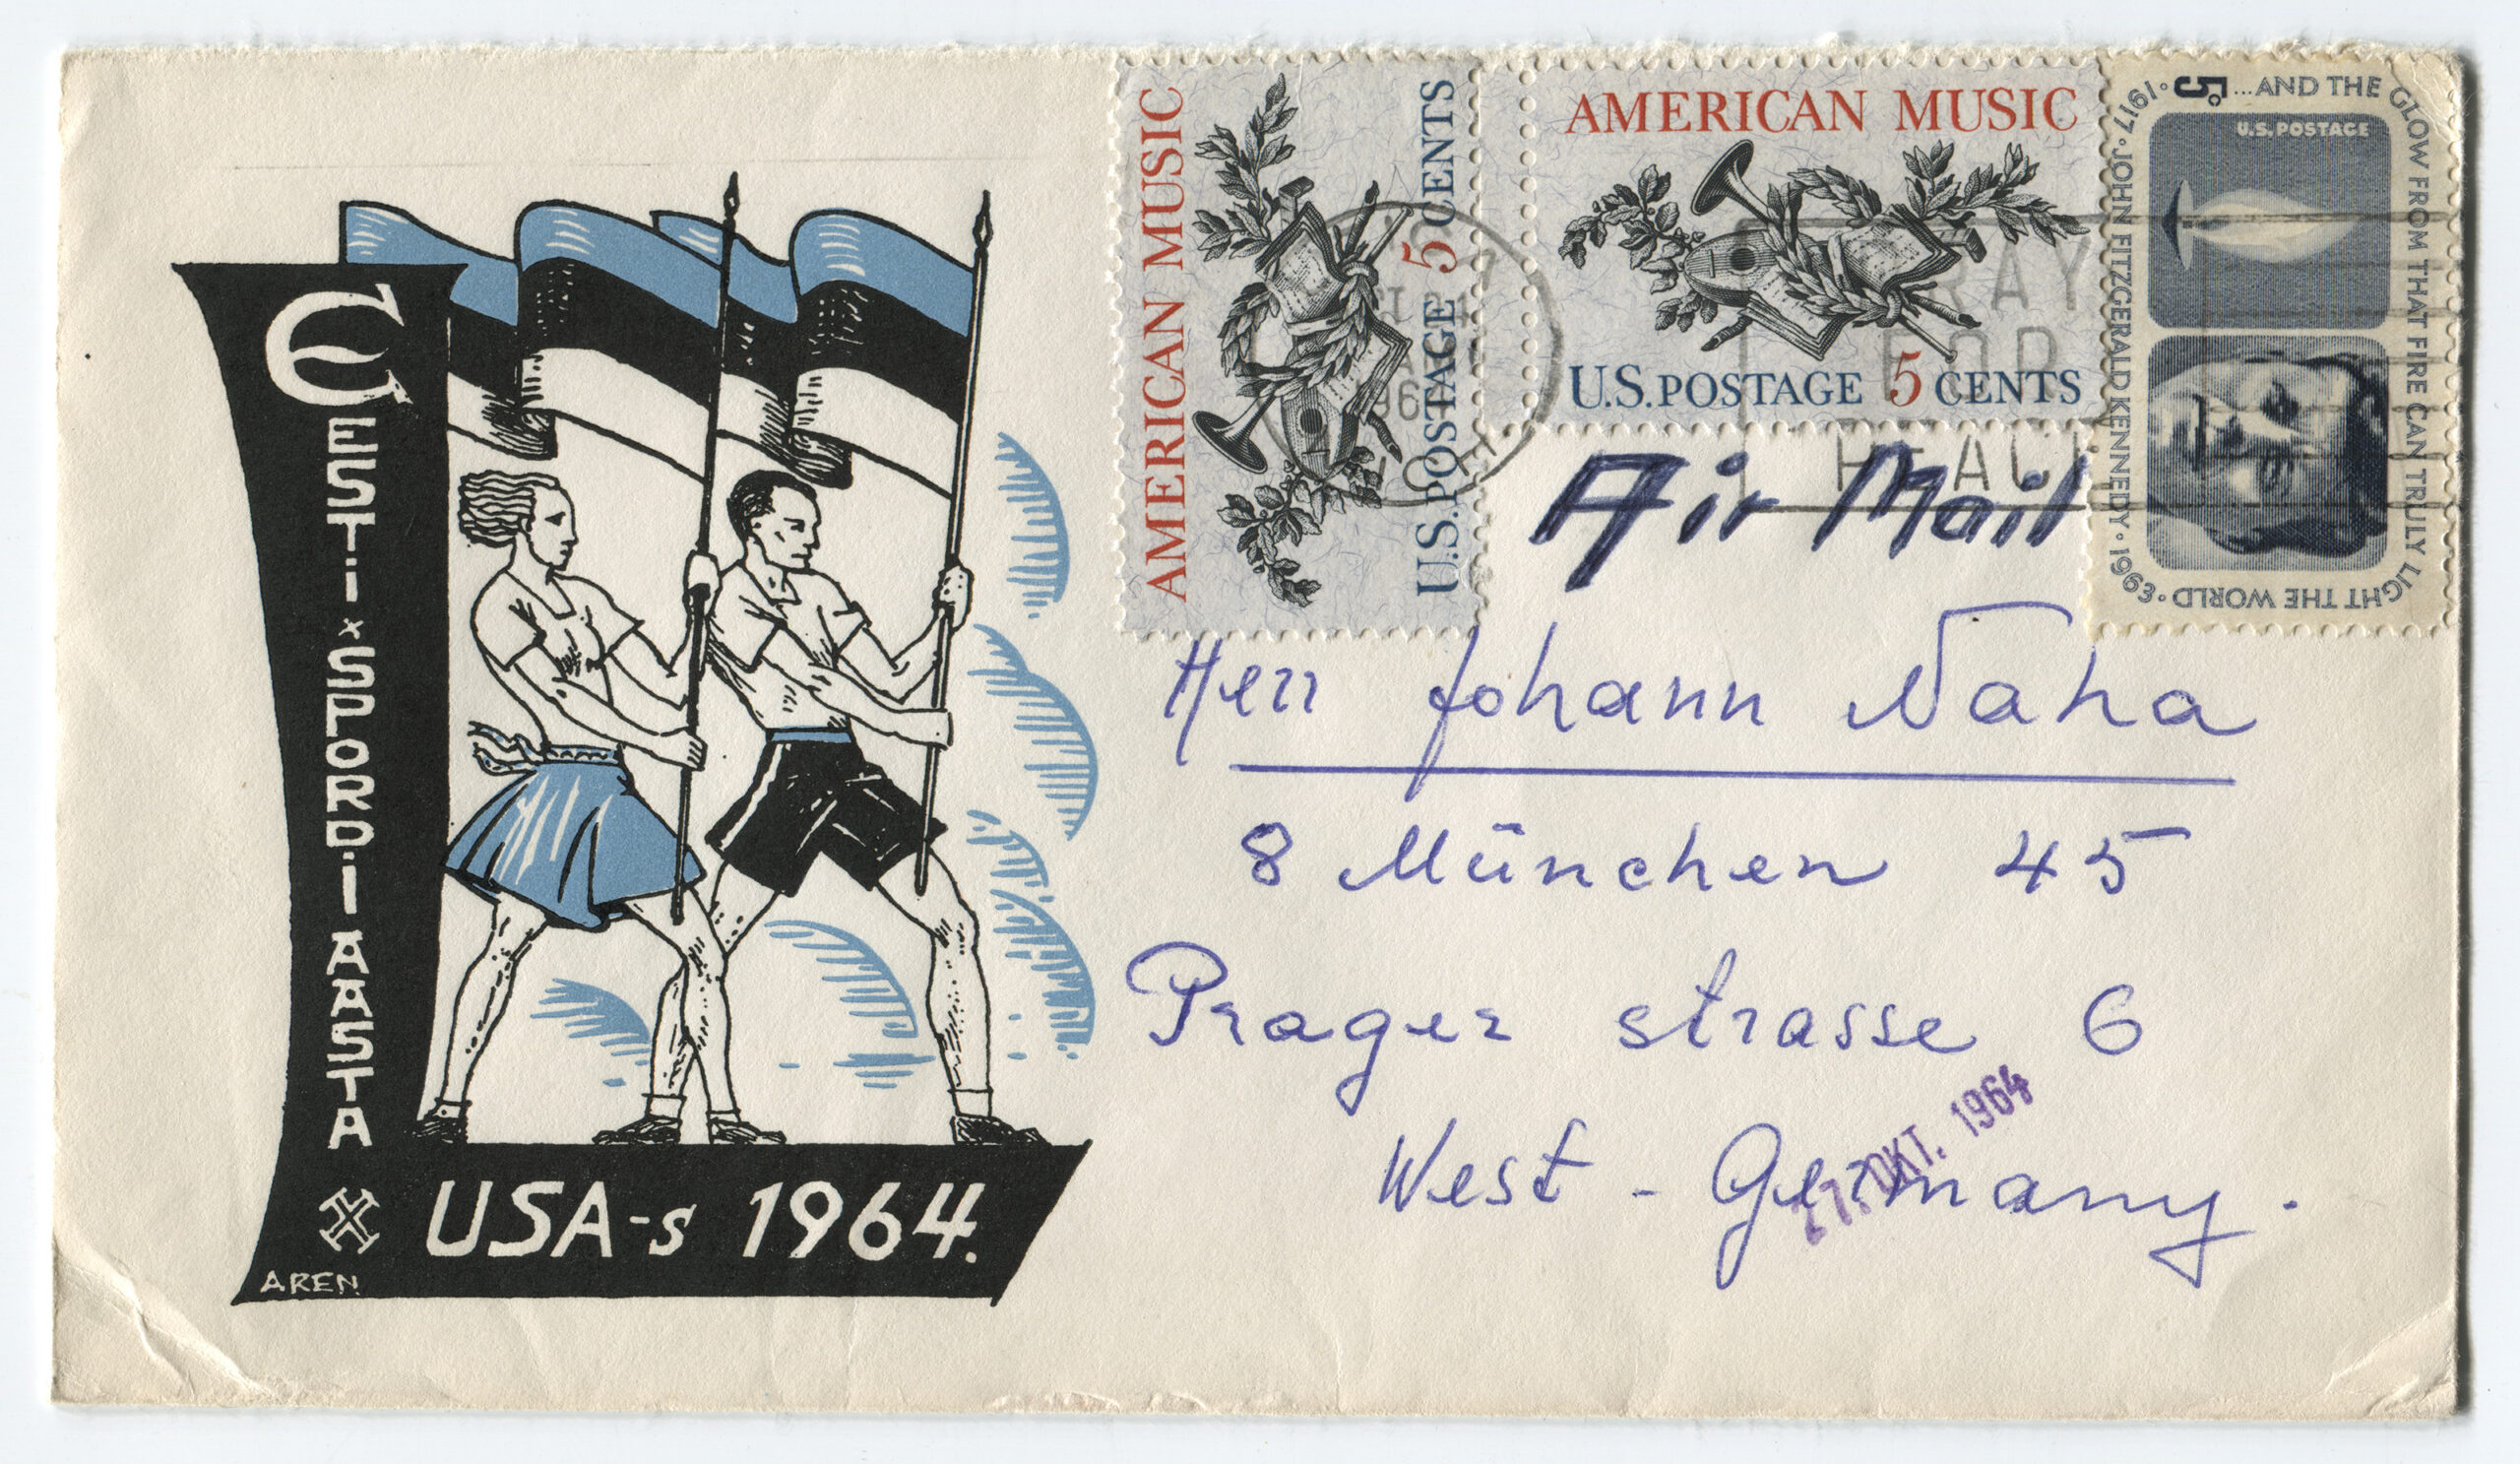 EESTI × SPORDI AASTA
USA-s 1964.
AREN
AMERICAN MUSIC
U.S. POSTAGE 5 CENTS
AMERICAN MUSIC
U.S. POSTAGE 5 CENTS
5c ...AND THE GLOW FROM THAT FIRE CAN TRULY LIGHT THE WORLD
1917 · JOHN FITZGERALD KENNEDY · 1963
U.S. POSTAGE
PRAY
FOR
PEACE
Air Mail
Herr Johann Naha
8 München 45
Prager strasse 6
West - Germany.
27. OKT. 1964